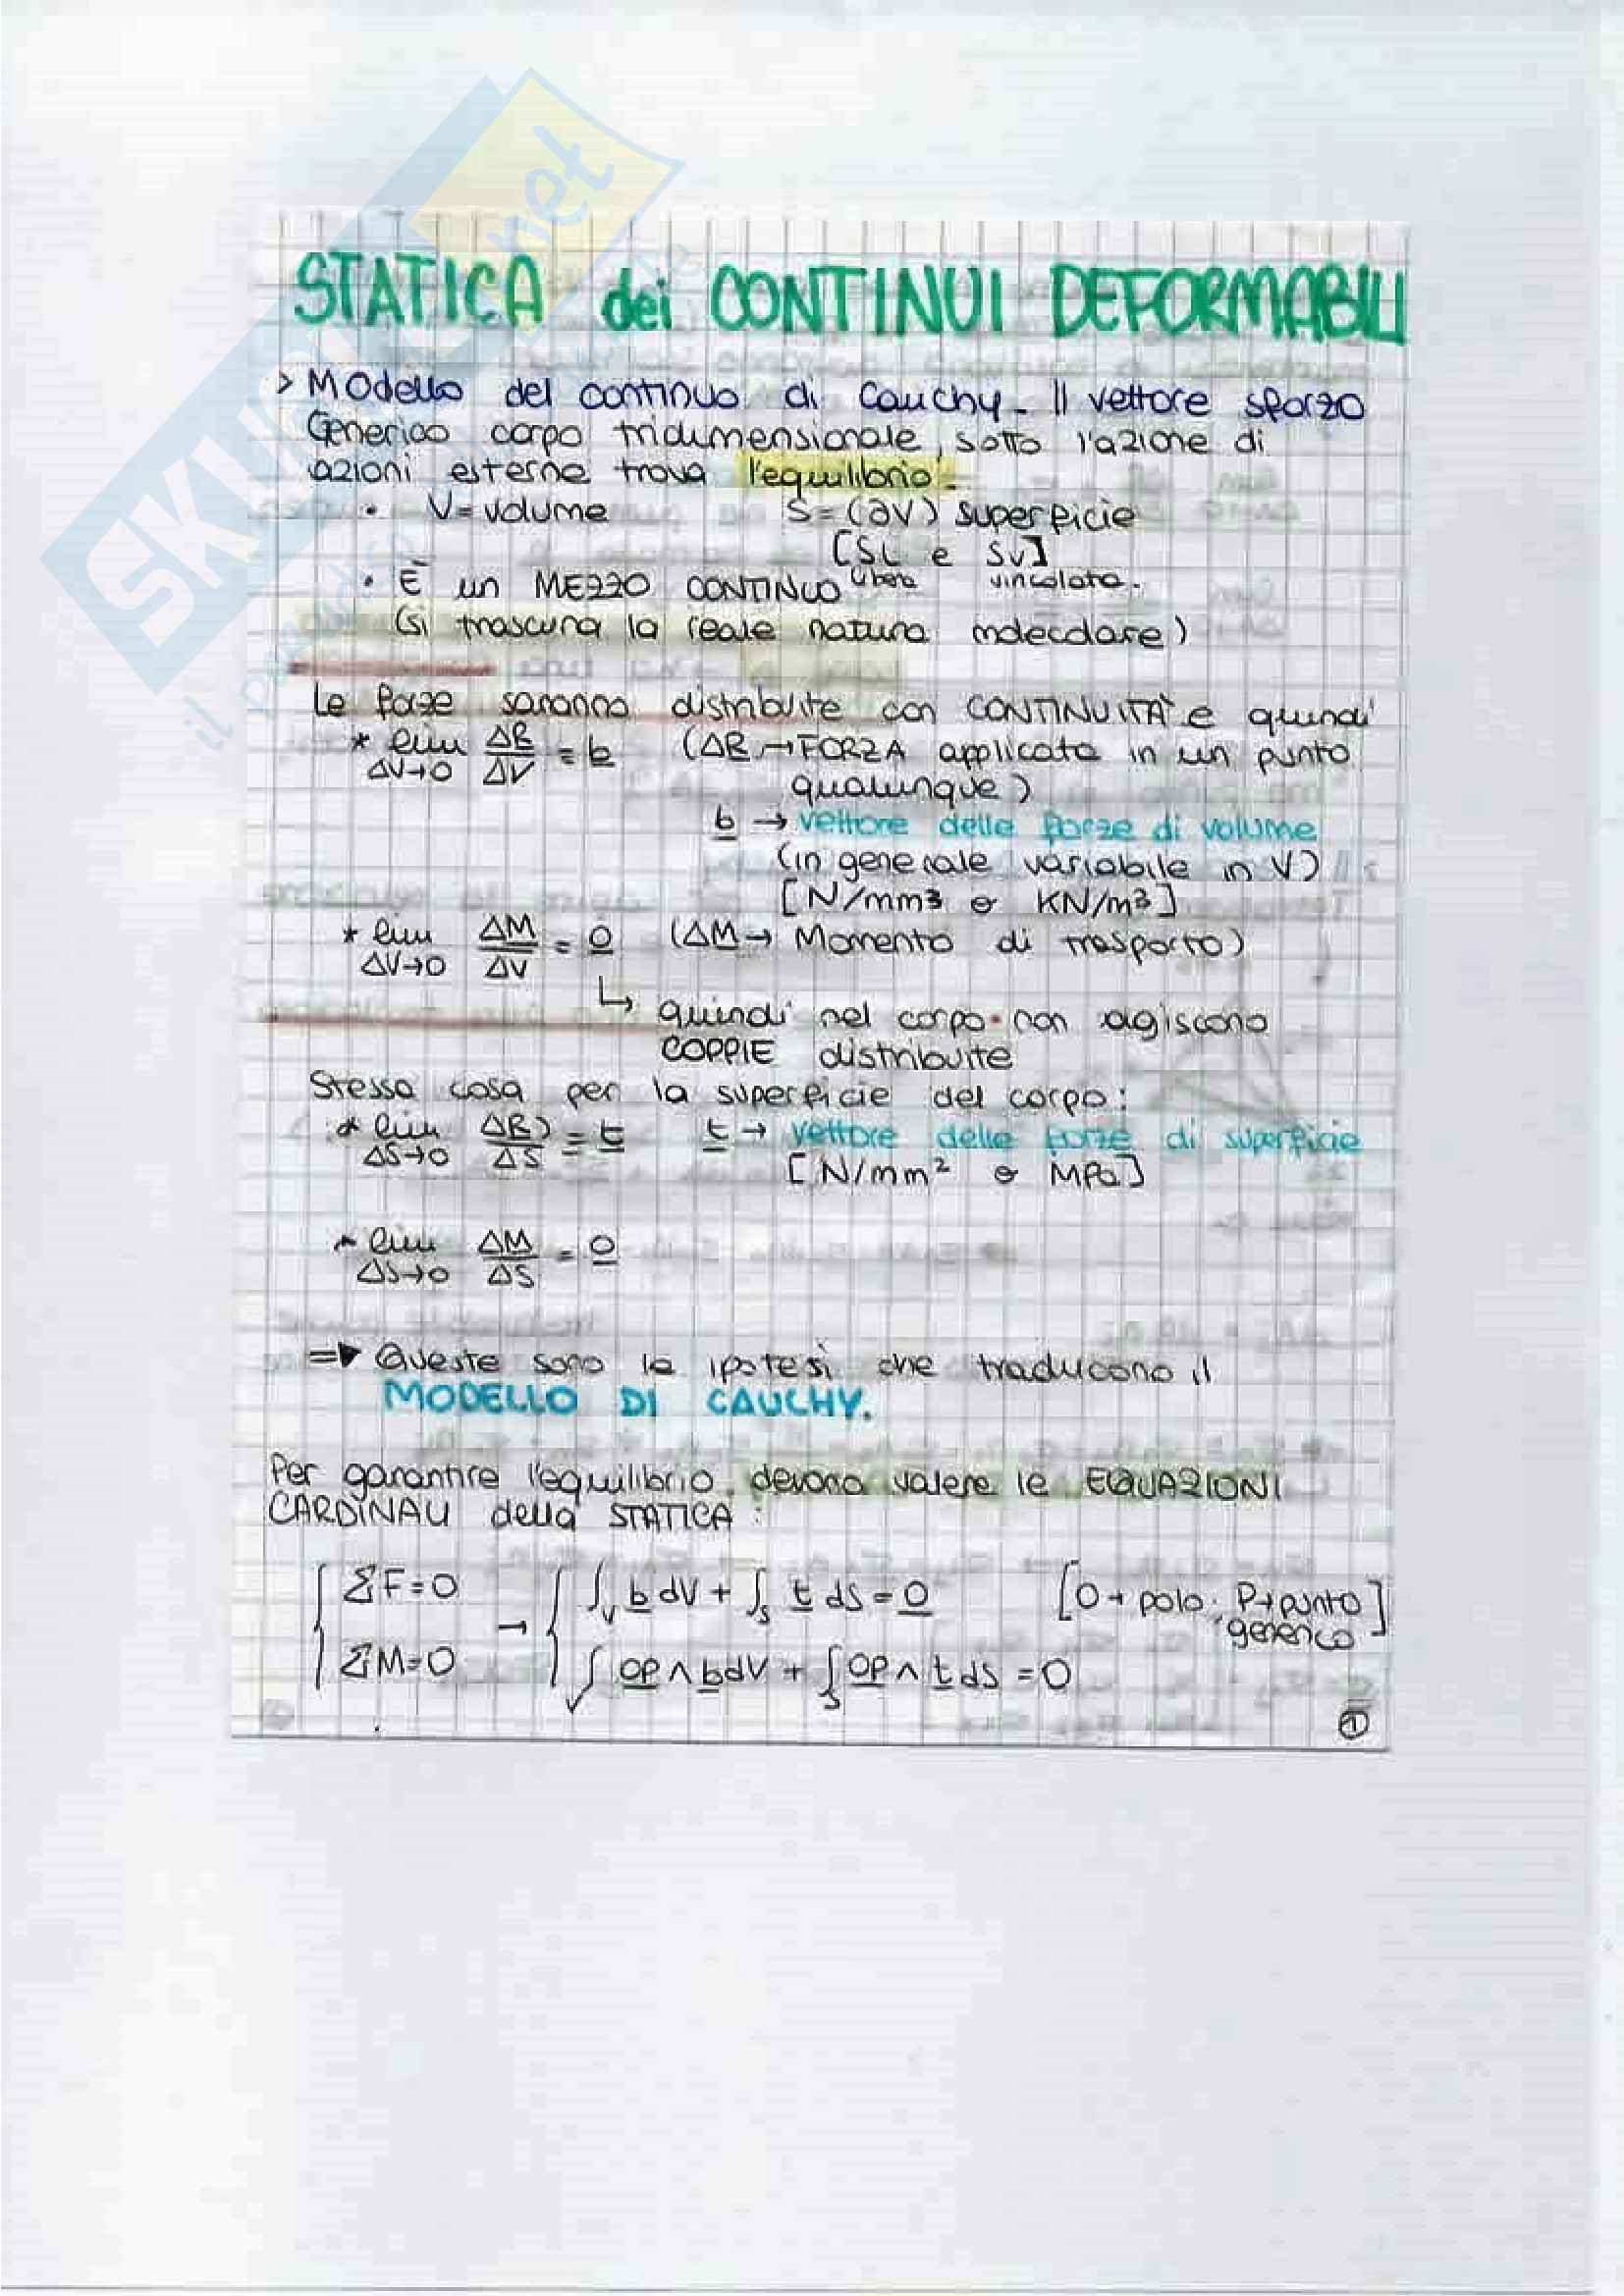 STATICA dei CONTINUI DEFORMABILI
> Modello del continuo di Cauchy - Il vettore sforzo
Generico corpo tridimensionale, sotto l'azione di
azioni esterne trova l'equilibrio.
• V = volume S = (∂V) superficie
[SL e SV]
libera vincolata.
• È un MEZZO CONTINUO
(si trascura la reale natura molecolare)
Le forze saranno distribuite con CONTINUITÀ e quindi
* lim ΔV→0 ΔR/ΔV = b (ΔR → FORZA applicata in un punto
qualunque)
b → vettore delle forze di volume
(in generale variabile in V)
[N/mm³ o KN/m³]
* lim ΔV→0 ΔM/ΔV = 0 (ΔM → Momento di trasporto)
↳ quindi nel corpo non agiscono
COPPIE distribuite
Stessa cosa per la superficie del corpo:
* lim ΔS→0 ΔR/ΔS = t t → vettore delle forze di superficie
[N/mm² o MPa]
* lim ΔS→0 ΔM/ΔS = 0
=> Queste sono le ipotesi che traducono il
MODELLO DI CAUCHY.
Per garantire l'equilibrio devono valere le EQUAZIONI
CARDINALI della STATICA:
{ ΣF=0 → { ∫V b dV + ∫S t dS = 0 [O → polo, P → punto
generico]
{ ΣM=0 { ∫V OP ∧ b dV + ∫S OP ∧ t dS = 0
1
SKUOLA.net